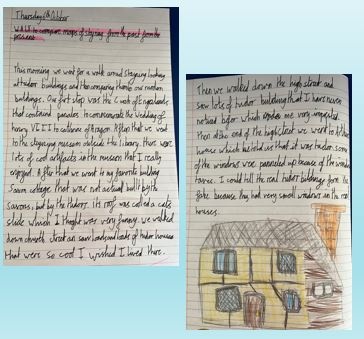 Thursday 6th October
WALT to compare maps of Steyning from the past from the
present
This morning we went for a walk around Steyning looking
at tudor buildings and then comparing them to our modern
buildings. Our first stop was the
that contained to commemorate the wedding of
henry VIII to catherine of Aragon. After that we went
to the Steyning museum outside the library there were
lots of cool artifacts in the museum that I really
enjoyed. After that we went to my favorite building
Saxon cottage that was not actually built by the
Saxons, but by the Tudors. its roof was called a cats
slide which I thought was very funny. we walked
down church street an saw loads and loads of tudor houses
that were so cool I wished I lived there.
Then we walked down the high street and
saw lots of tudor buildings that I have never
noticed before which made me very
Then at the end of the high street we went to
house which he told us that it was tudor some
of the windows were pannelled up because of the window
taxes. I could tell the real tudor buildings from the
fake because they had very small windows on the real
houses.